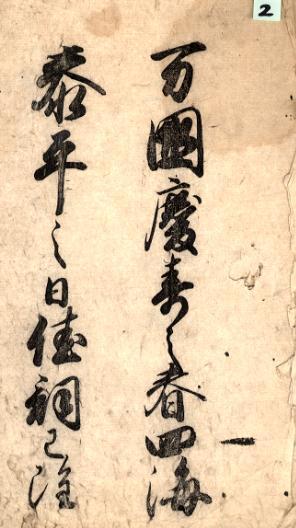 2
万國慶寿之春四海
泰平之日佳詞已